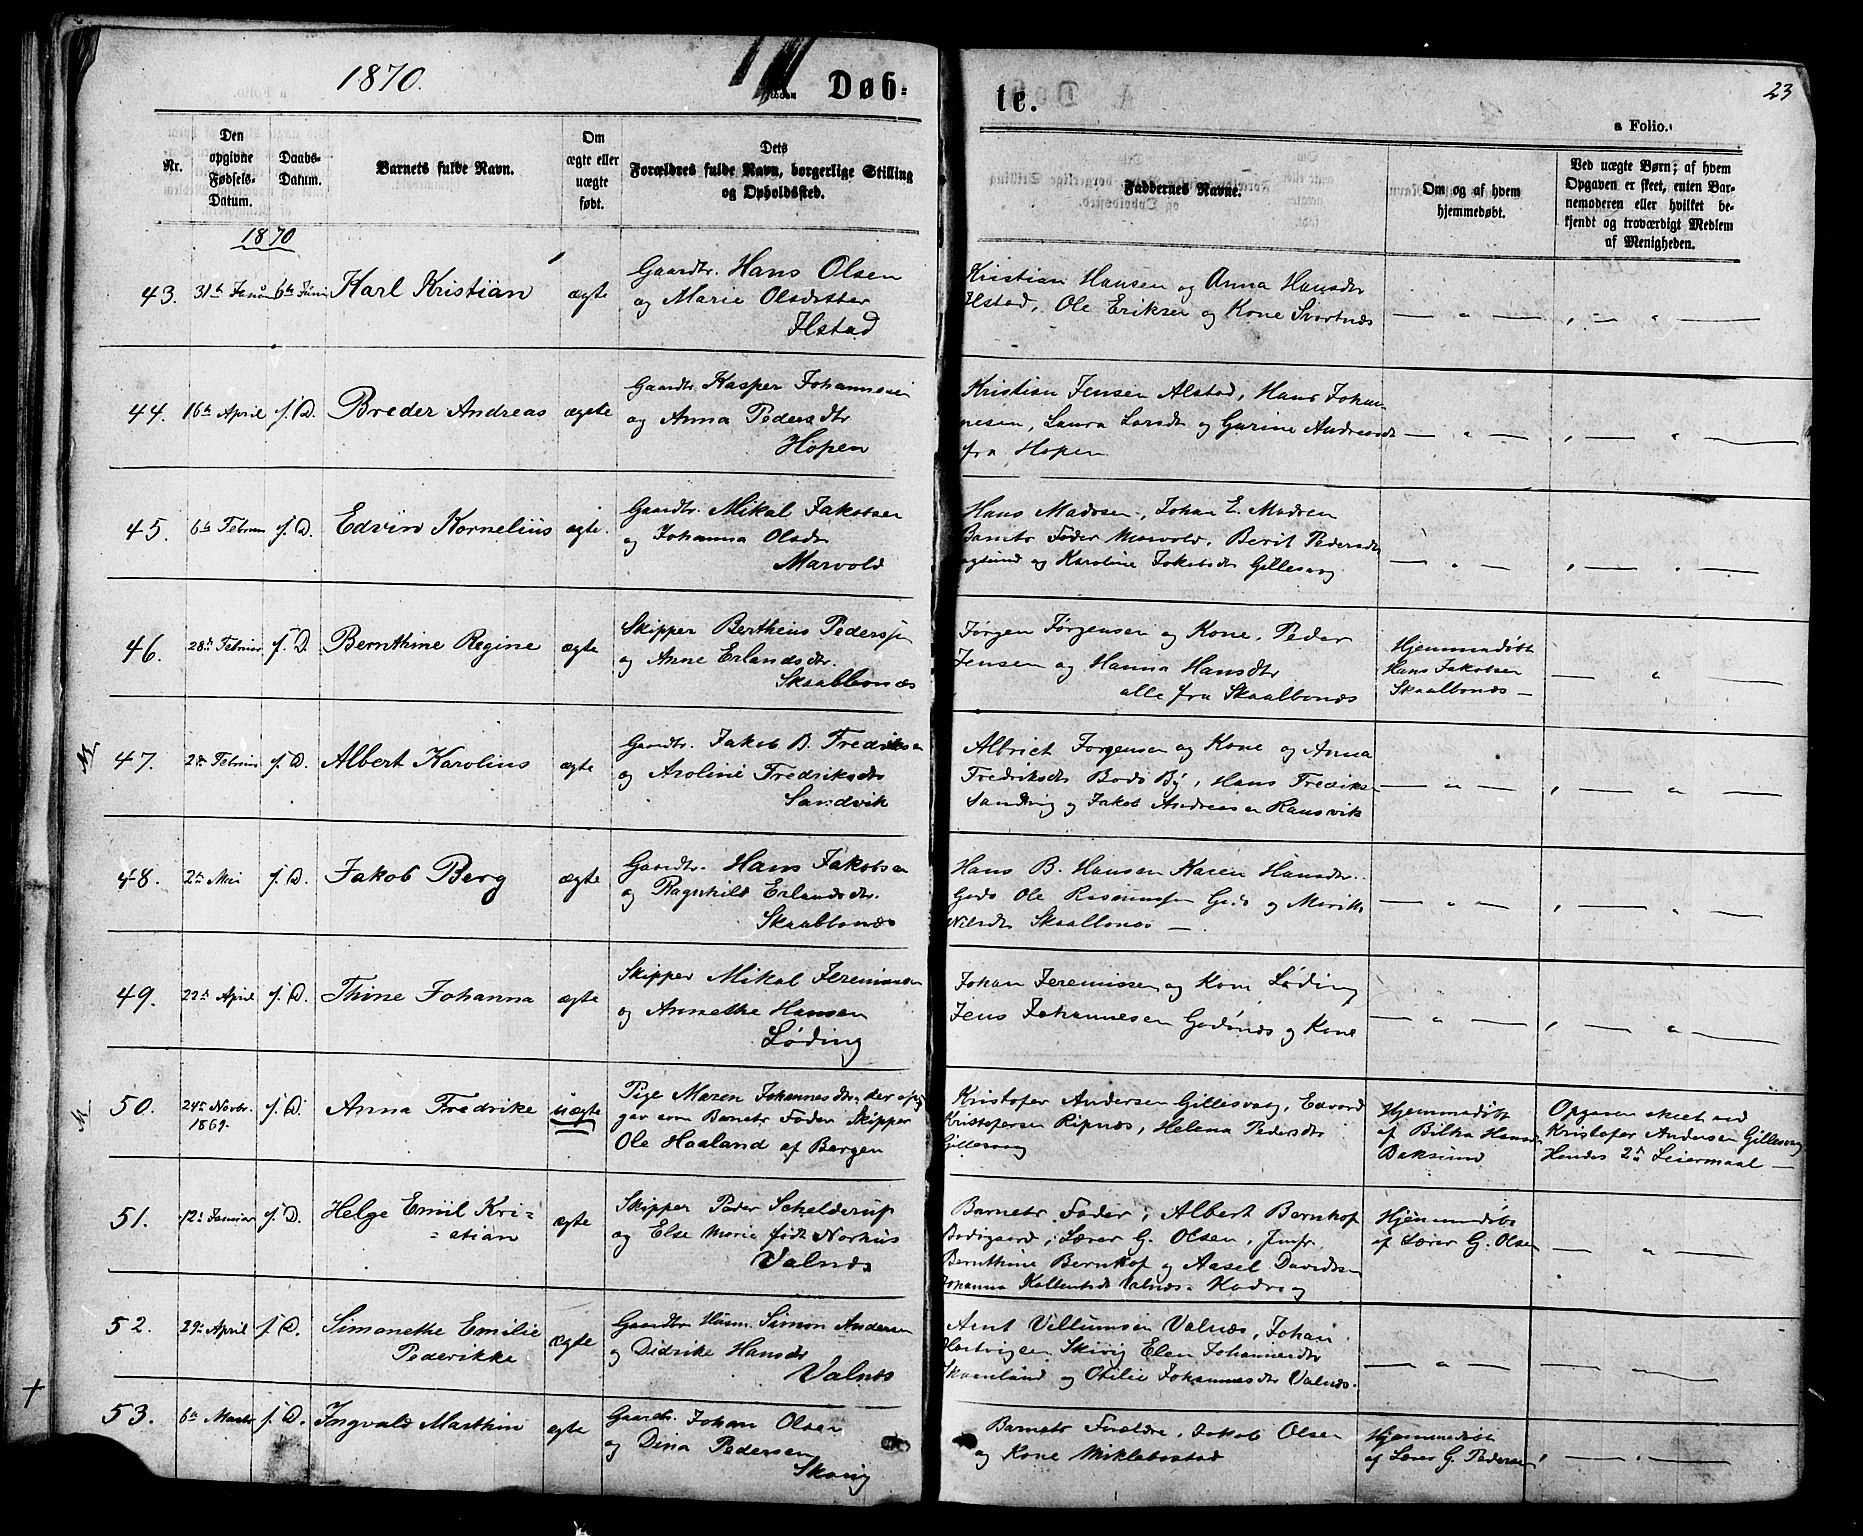 1870.
Døb-
te.
23
a Folio.
Nr.
Den
opgivne
Fødsels-
Datum.
Daabs-
Datum.
Barnets fulde Navn.
Om
ægte eller
uægte
født.
Dets
Forældres fulde Navn, borgerlige Stilling
og Opholdssted.
Faddernes Navne.
Om og af hvem
hjemmedøbt.
Ved uægte Børn; af hvem
Opgaven er skeet, enten Bar-
nemoderen eller hvilket be-
kjendt og troværdigt Medlem
af Menigheden.
1870
43. 6te Juni Karl Kristian ægte
Gaardbr. Hans Olsen
og Marie Olsdatter
Ilstad
Kristian Hansen og Anna Hansdtr
Ilstad, Ole Eriksen og Kone Svartnæs
44. 16de April s. D. Breder Andreas ægte
Gaardbr Kasper Johannesen
og Anna Pedersdtr
Hopen
Kristian Jensen Alstad, Hans Johan-
nesen, Laura Larsdtr og Gurine Andreasdtr
fra Hopen
45. 6te Februar s. D. Edvin Kornelius ægte.
Gaardbr. Mikal Jakobsen
og Johanna Olsdtr
Marvold
Hans Madsen, Johan E. Madsen
Barnets Fader Marvold, Berit Pedersdtr
og Karoline Jakobsdtr Gillesvag
46. 28de Februar s. D. Bernthine Regine ægte
Skipper Bertheus Pedersen
og Anne Erlandsdtr.
Skaalbonæs
Jørgen Jørgensen og Kone, Peder
Jensen og Hanna Hansdtr
alle fra Skaalbonæs
Hjemmedøbt
Hans Jakobsen
Skaalbonæs —
47. Februar s. D. Albert Karolius ægte
Gaardbr. Jakob B. Fredriksen
og Aroline Fredriksdtr
Sandvik
Albrict Jørgensen og Kone og Anna
Fredriksdtr Bodø By, Hans Fredriksen
Sandvig og Jakob Andreasen Rausvik
48. 2den Mai s. D. Jakob Berg ægte
Gaardbr. Hans Jakobsen
og Ragnhild Erlandsdtr.
Skaalbonæs
Hans B. Hansen Karen Hansdtr.
Godø Ole Rasmussen Godø og Marith
Nilsdtr Skaalbonæs —
49. 22de April s. D. Thine Johanna ægte
Skipper Mikal Jeremiassen
og Annethe Hansen
Løding
Johan Jeremissen og Kone Løding
Jens Johannesen Godønæs og Kone
50. 24de Novbr. s. D. Anna Fredrike uægte
1869.
Pige Maren Johannesdtr, der opgav
som Barnets Fader Skipper
Ole Haaland af Bergen
Kristofer Andersen Gillesvag, Edvard
Kristofersen Ripnæs, Helena Pedersdtr
Gillesvag
Hjemmedøbt
af Hansdtr
Baksund
Opgaven skeet ved
Kristofer Andersen Gillesvag
Hendes 2det Leiermaal —
51. 12te Januar s. D. Helge Emil Kri-
-stian ægte
Skipper Peder Schelderup
og Else Marie født Norhus
Valnæs
Barnets Fader, Albert Bernhof
Bodøgaard, Lærer G. Olsen, Jomfr.
Bernthine Bernhof og Aasel Davidsen
Johanna Valnæs
Hjemmedøbt
af Lærer G. Olsen
52. 29de April s. D. Simonethe Emilie
Pederikke ægte
Gaardbr Husm. Simon Andersen
og Didrike Hansdtr
Valnæs
Arnt Villumsen Valnæs, Johan
Hartvigsen Skivig Elen Johannesdtr
og Otilie Johannesdtr Valnæs.
53. 6te Marts s. D. Ingvald Marthin ægte
Gaardbr. Johan Olsen
og Dina Pedersen
Skavig
Barnets Forældre, Jakob Olsen
og Kone Miklebostad
Hjemmedøbt
af Lærer G. Pedersen